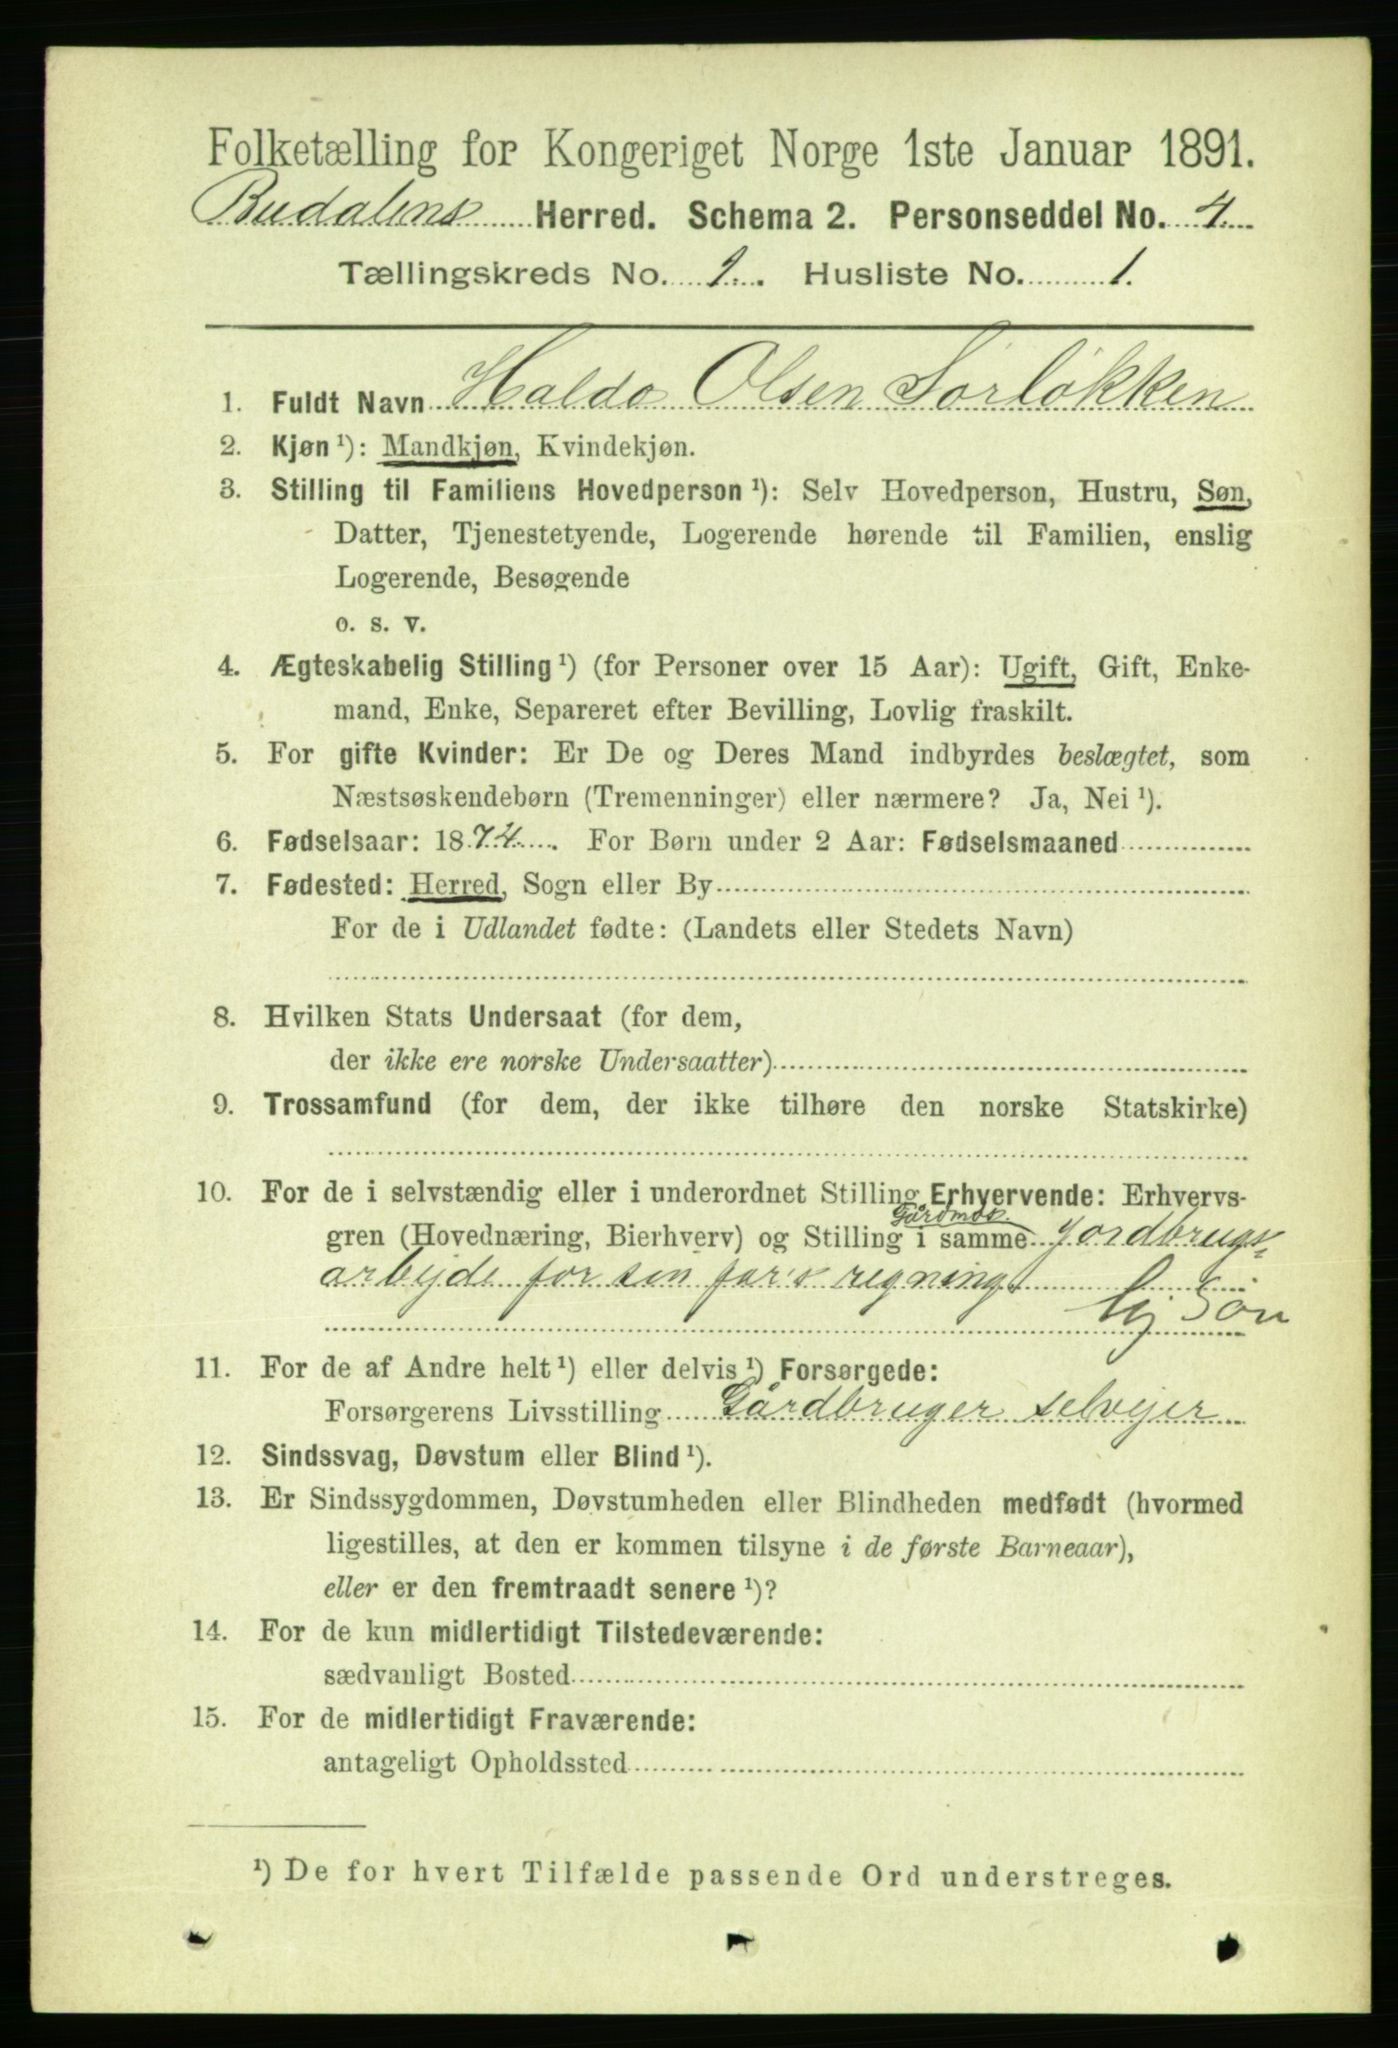 Folketælling for Kongeriget Norge 1ste Januar 1891.
Budalens Herred. Schema 2. Personseddel No. 4.
Tællingskreds No. 1. Husliste No. 1.
1. Fuldt Navn Haldo Olsen Sørløkken
2. Kjøn ¹): Mandkjøn, Kvindekjøn.
3. Stilling til Familiens Hovedperson ¹): Selv Hovedperson, Hustru, Søn,
Datter, Tjenestetyende, Logerende hørende til Familien, enslig
Logerende, Besøgende
o. s. v.
4. Ægteskabelig Stilling ¹) (for Personer over 15 Aar): Ugift, Gift, Enke-
mand, Enke, Separeret efter Bevilling, Lovlig fraskilt.
5. For gifte Kvinder: Er De og Deres Mand indbyrdes beslægtet, som
Næstsøskendebørn (Tremenninger) eller nærmere? Ja, Nei ¹).
6. Fødselsaar: 1874. For Børn under 2 Aar: Fødselsmaaned
7. Fødested: Herred, Sogn eller By
For de i Udlandet fødte: (Landets eller Stedets Navn)
8. Hvilken Stats Undersaat (for dem,
der ikke ere norske Undersaatter)
9. Trossamfund (for dem, der ikke tilhøre den norske Statskirke)
10. For de i selvstændig eller i underordnet Stilling Erhvervende: Erhvervs-
gren (Hovednæring, Bierhverv) og Stilling i samme Jordbrugs-
arbejde for sin far's regning.
Søn
11. For de af Andre helt ¹) eller delvis ¹) Forsørgede:
Forsørgerens Livsstilling Gårdbruger selvejer
12. Sindssvag, Døvstum eller Blind ¹).
13. Er Sindssygdommen, Døvstumheden eller Blindheden medfødt (hvormed
ligestilles, at den er kommen tilsyne i de første Barneaar),
eller er den fremtraadt senere ¹)?
14. For de kun midlertidigt Tilstedeværende:
sædvanligt Bosted
15. For de midlertidigt Fraværende:
antageligt Opholdssted
¹) De for hvert Tilfælde passende Ord understreges.